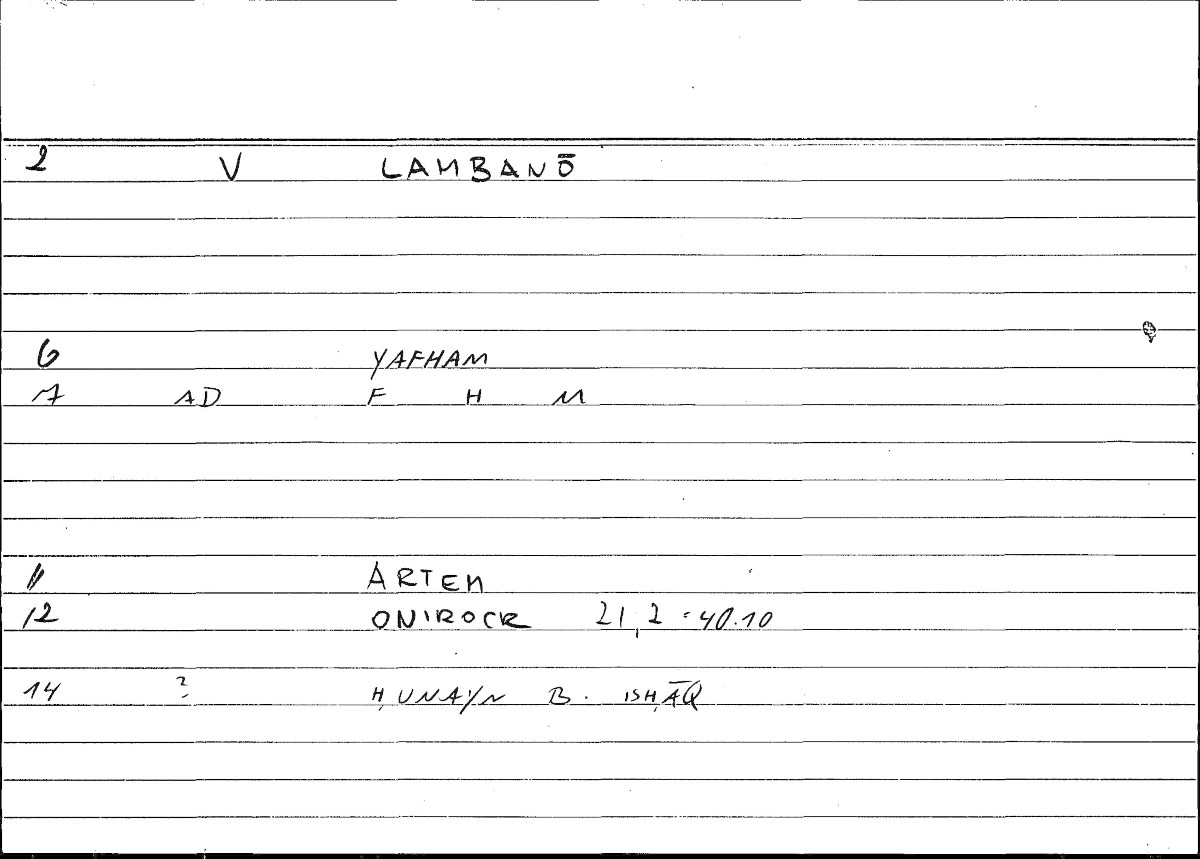 2 V LAMBANŌ
6 YAFHAM
7 AD F H M
11 ARTEM
12 ONIROCR 21,2 = 40.10
14 ? ḤUNAYN B. ISḤĀQ